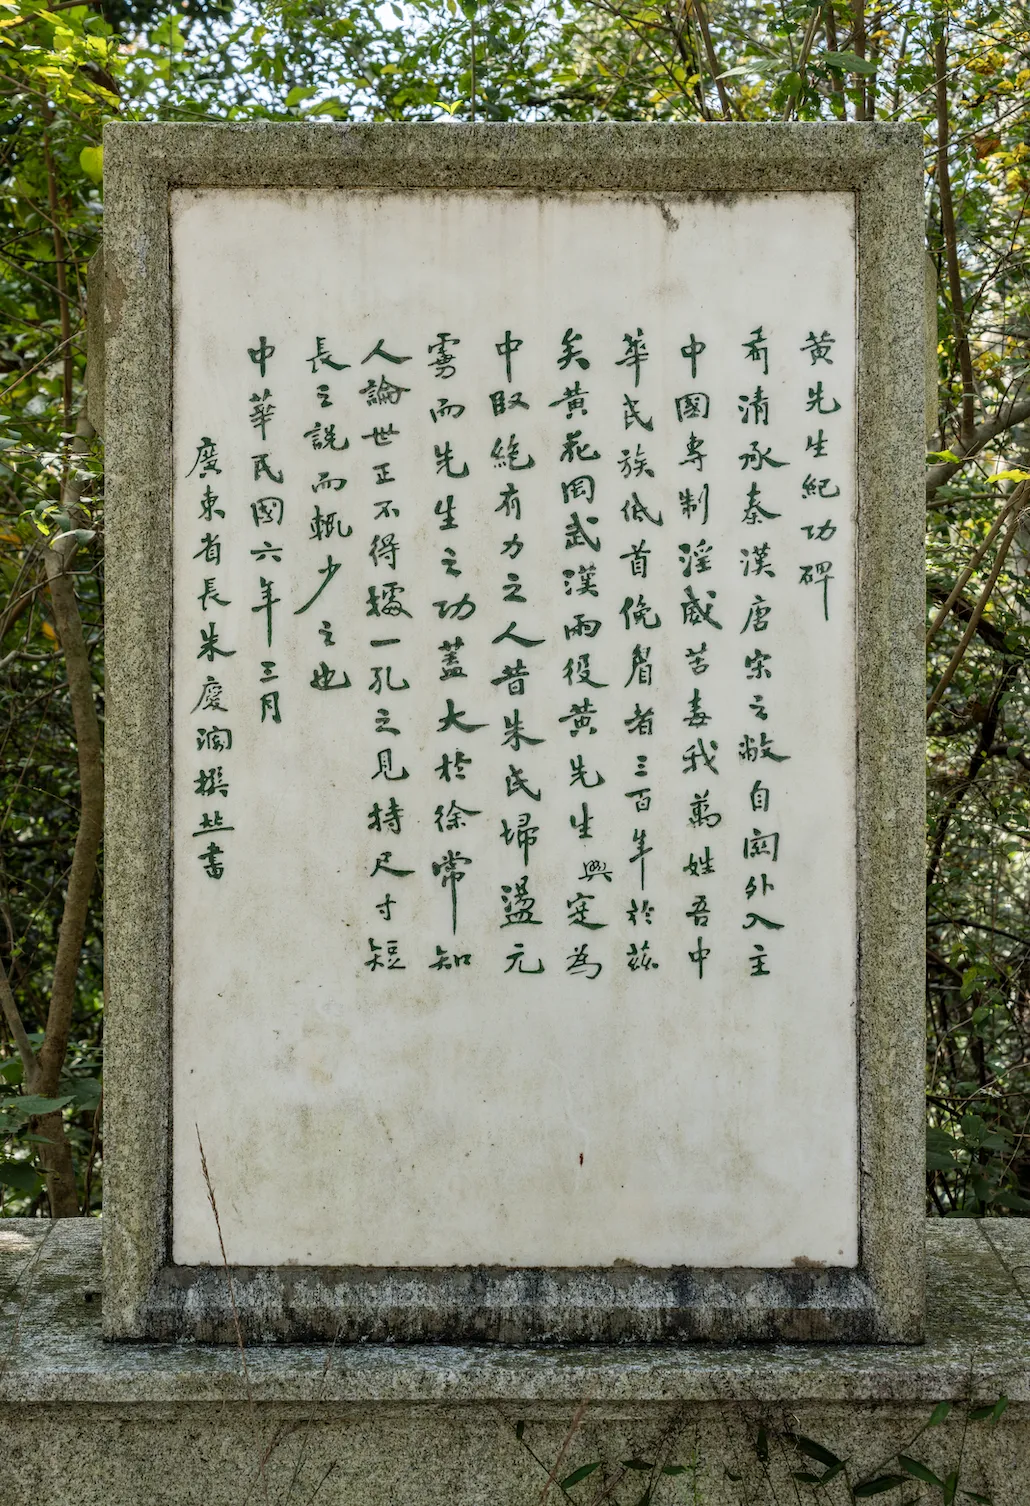 黃先生紀功碑
清承秦漢唐宋之敝自関外入主
中國專制淫威苦毒我萬姓吾中
華民族低首俛眉者三百年於茲
矣黃花岡武漢兩役黃先生與定為
中臤絕有力之人昔朱氏埽盪元
雰而先生之功蓋大於徐常知
人論世正不得據一孔之見持尺寸短
長之說而輒少之也
中華民國六年三月
廣東省長朱慶瀾撰並書